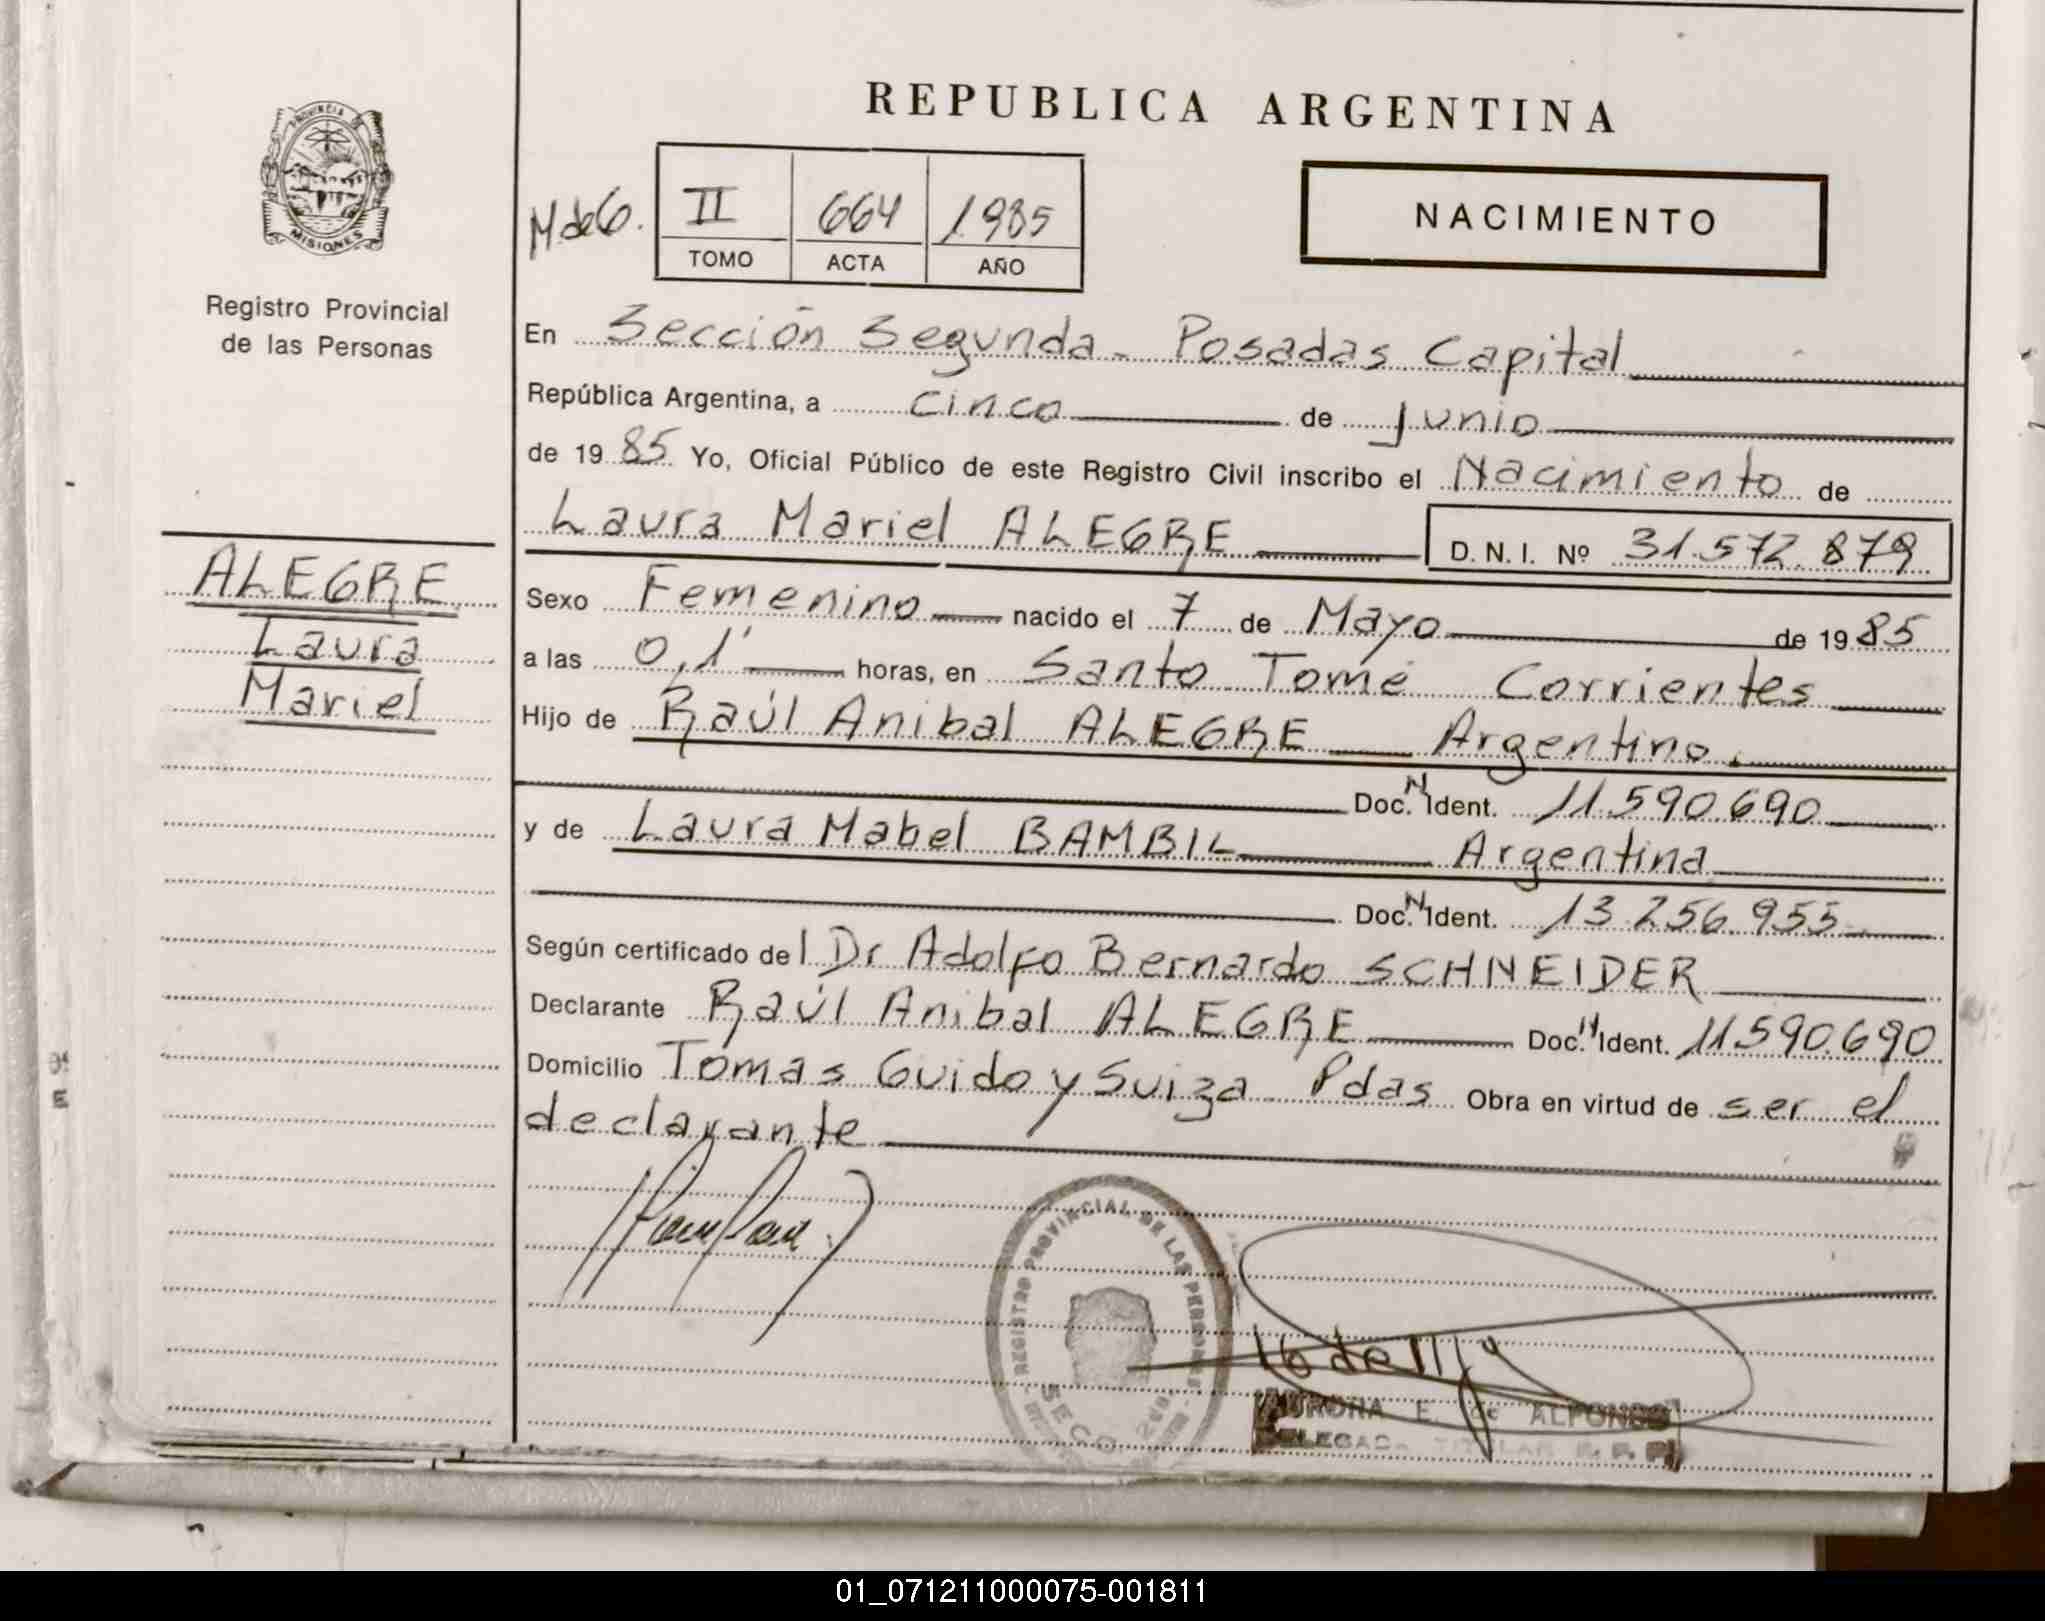 REPUBLICA ARGENTINA
PROVINCIA DE
MISIONES
Registro Provincial
de las Personas
M.deG. II 664 1985
TOMO ACTA AÑO
NACIMIENTO
En Sección Segunda - Posadas Capital
República Argentina, a cinco de junio
de 1985 Yo, Oficial Público de este Registro Civil inscribo el Nacimiento de
Laura Mariel ALEGRE D. N. I. Nº 31.572.879
ALEGRE
Laura
Mariel
Sexo Femenino nacido el 7 de Mayo de 1985
a las 0,1' horas, en Santo Tomé Corrientes
Hijo de Raúl Anibal ALEGRE Argentino.
Doc. N. Ident. 11.590.690
y de Laura Mabel BAMBIL Argentina
Doc. N. Ident. 13.256.955
Según certificado del Dr Adolfo Bernardo SCHNEIDER
Declarante Raúl Anibal ALEGRE Doc. N. Ident. 11.590.690
Domicilio Tomas Guido y Suiza Pdas Obra en virtud de ser el
declarante
REGISTRO PROVINCIAL DE LAS PERSONAS
SECC. 2da
AURORA E. de ALFONSO
DELEGADA TITULAR R. P. P.
01_071211000075-001811